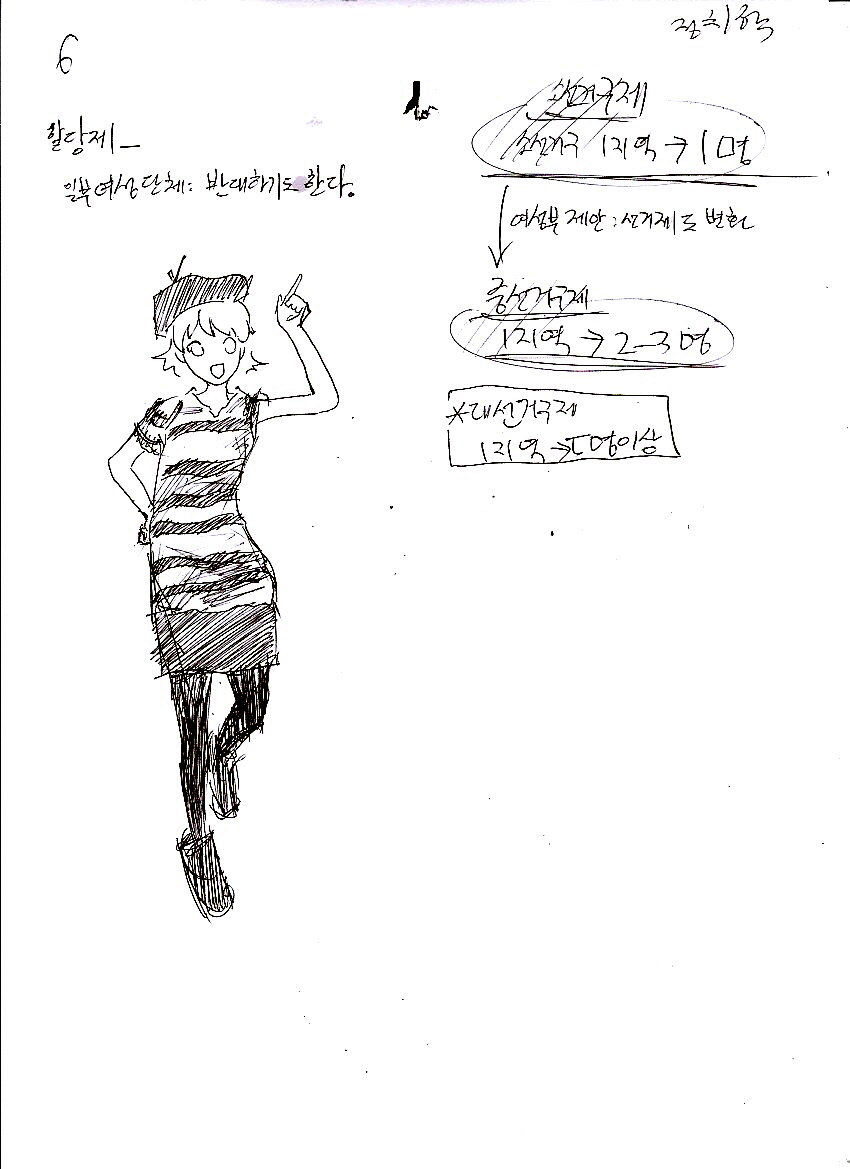 정치학
6
할당제_
일부 여성단체: 반대하기도 한다.
소선거구제
소선거구 1지역 → 1명
여성부 제안 : 선거제도 변화
중선거구제
1지역 → 2-3명
*대선거구제
1지역 → 5명이상